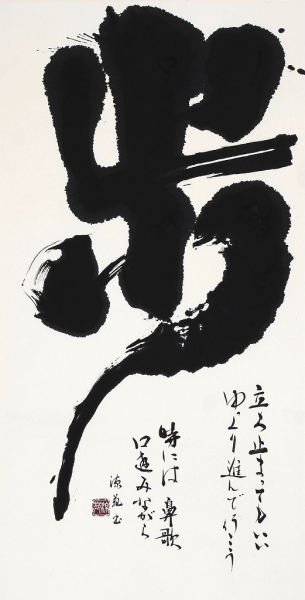 歩
立ち止まってもいい
ゆっくり進んで行こう
時には鼻歌
口遊みながら